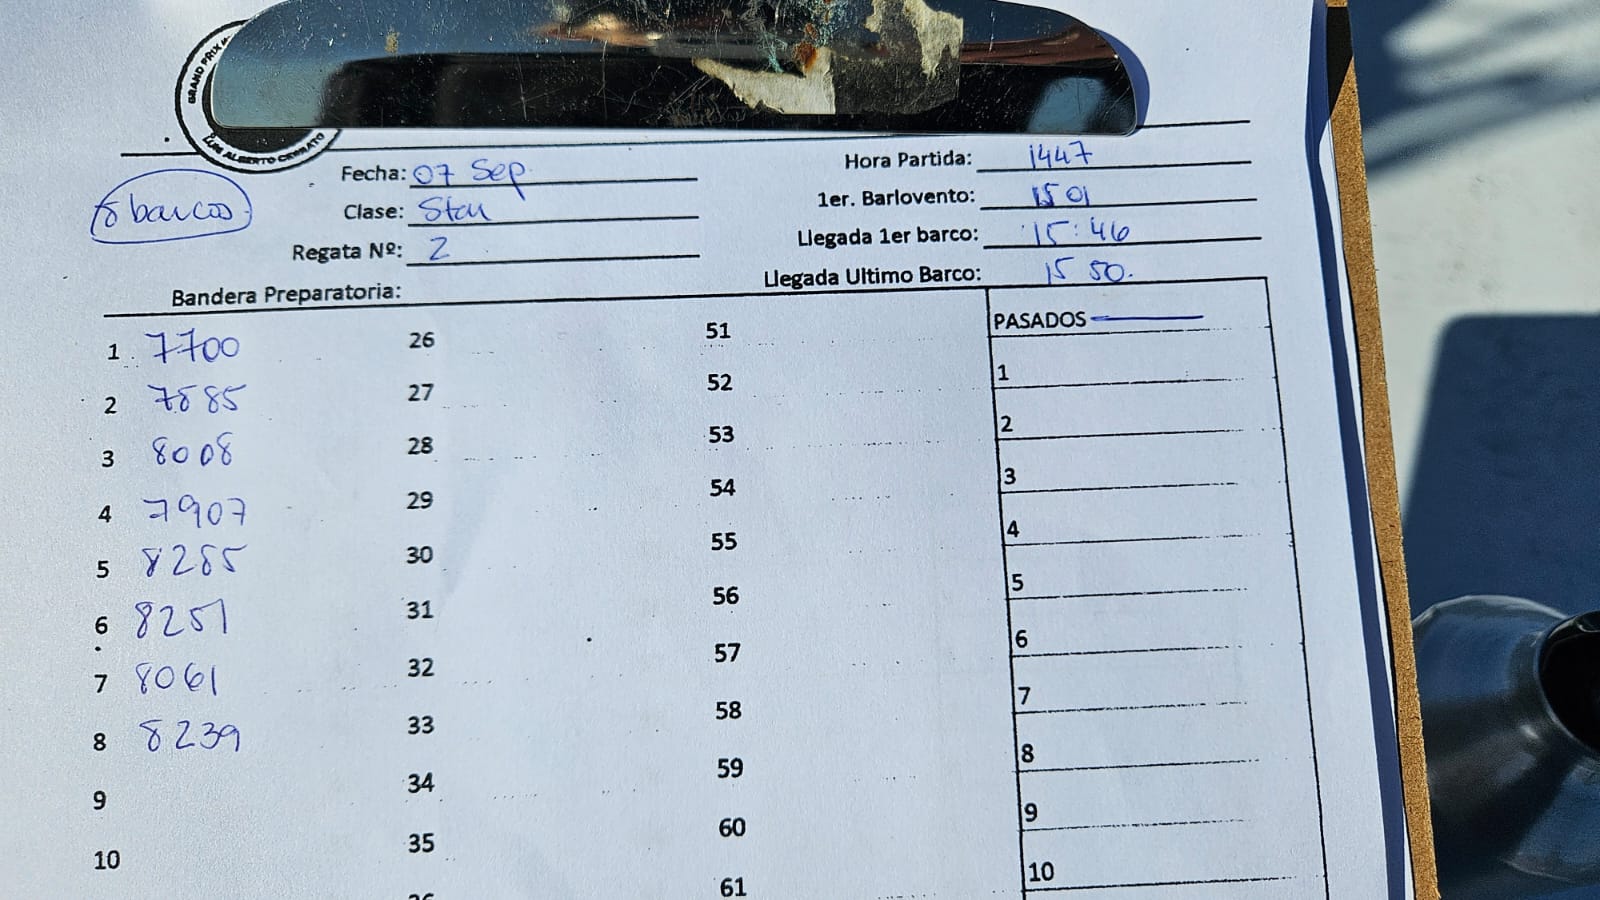 GRAND PRIX
LUIS ALBERTO CERRATO
8 barcos
Fecha: 07 Sep.
Clase: Star
Regata Nº: 2
Bandera Preparatoria:
Hora Partida: 1447
1er. Barlovento: 1501
Llegada 1er barco: 15:46
Llegada Ultimo Barco: 15 50.
1 7700
2 7885
3 8008
4 7907
5 8285
6 8251
7 8061
8 8239
9
10
26
27
28
29
30
31
32
33
34
35
51
52
53
54
55
56
57
58
59
60
61
PASADOS
1
2
3
4
5
6
7
8
9
10